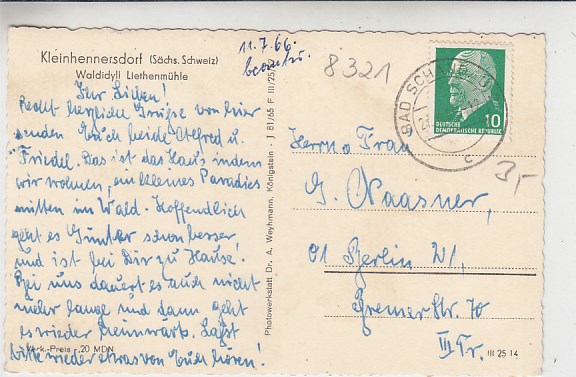 Kleinhennersdorf (Sächs. Schweiz)
Waldidyll Liethenmühle
11.7.66
8321
Ihr Lieben!
Recht herzliche Grüße von hier
senden Euch beide Alfred u.
Friedel. Das ist das Haus indem
wir wohnen, ein kleines Paradies
mitten im Wald. Hoffendlich
geht es Günter schon besser
und ist bei Dir zu Hause!
Bei uns dauert es auch nicht
mehr lange und dann geht
es wieder heimwärts. Laßt
bitte wieder etwas von Euch hören!
Verk.-Preis -,20 MDN
Photowerkstatt Dr. A. Weyhmann, Königstein - J 81/65 F III/25/
BAD SCH
c
10
DEUTSCHE
DEMOKRATISCHE REPUBLIK
3,-
Herrn u. Frau
G. Naasner,
01 Berlin W1,
Bremer Str. 70
III Tr.
III 25 14